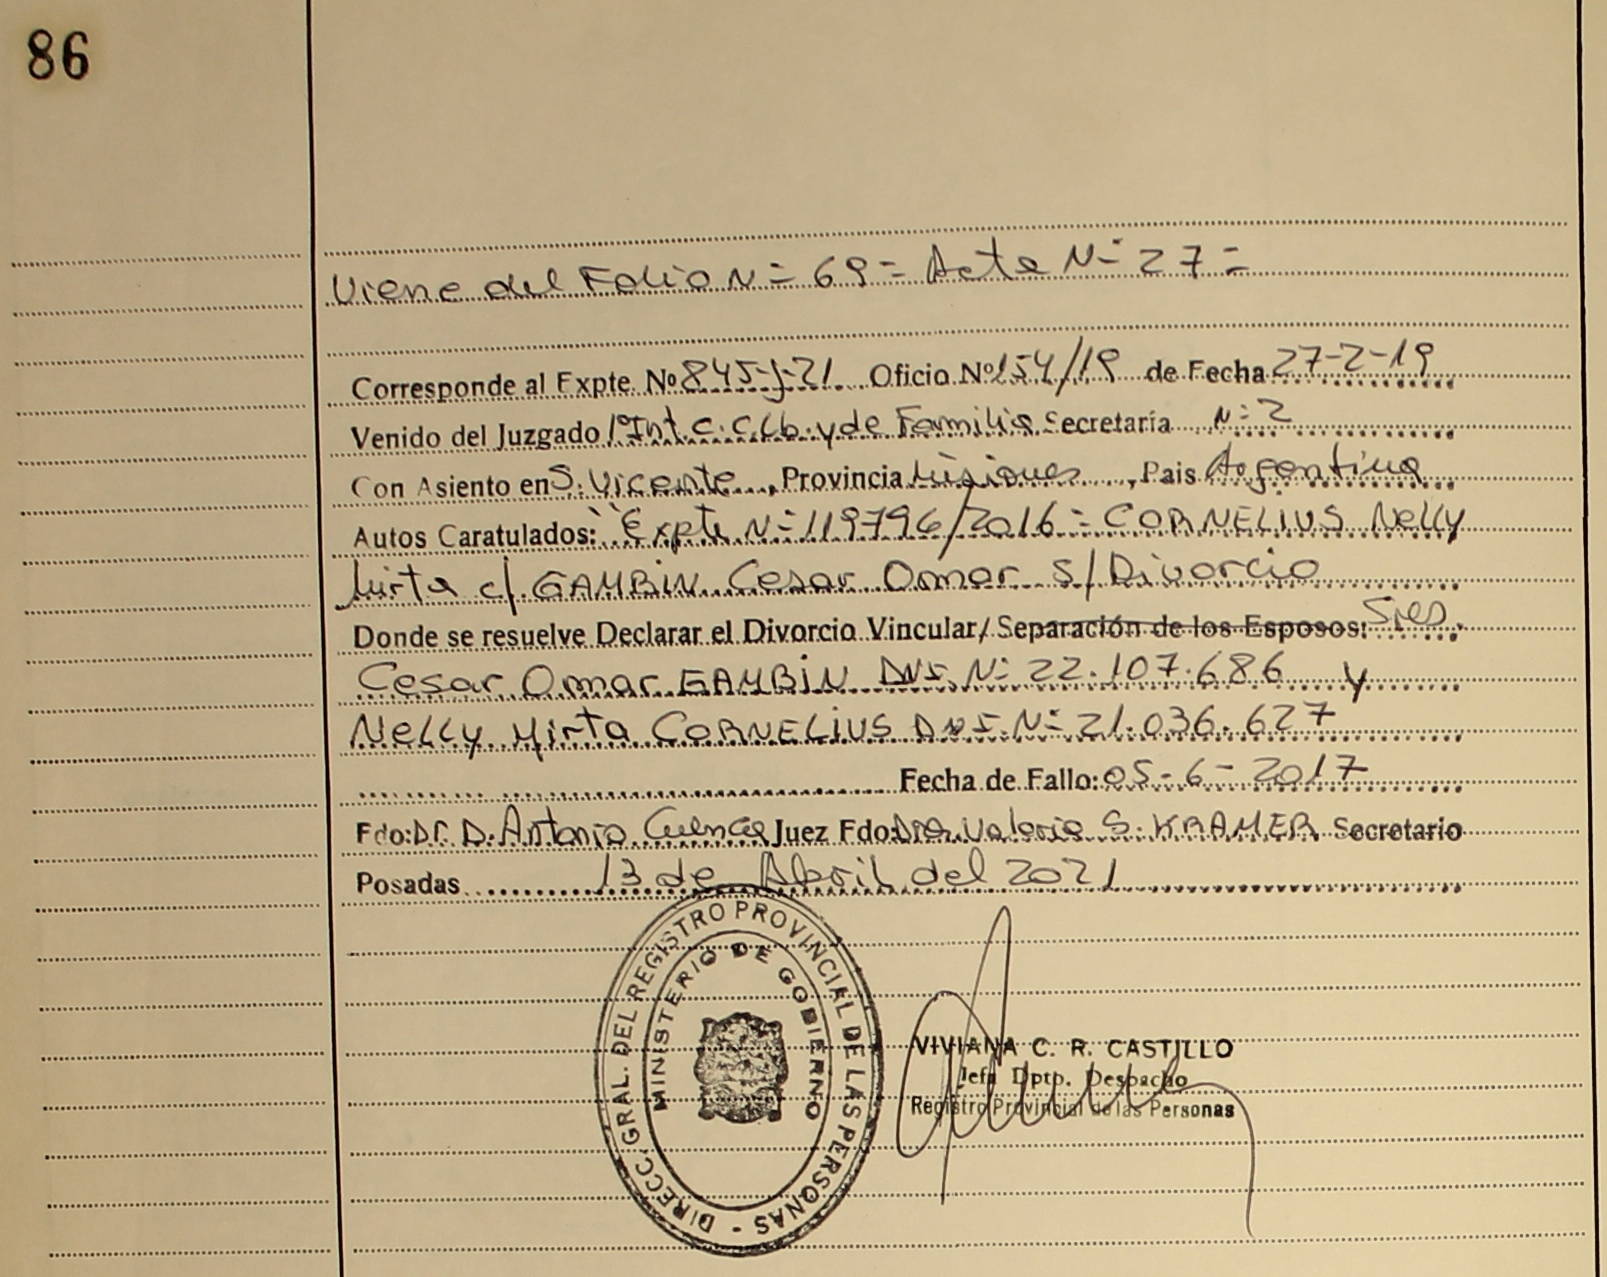 86
Viene del Folio N= 69= Acta N= 27=
Corresponde al Expte. Nº 845-J-21 Oficio Nº 154/19 de Fecha 27-2-19
Venido del Juzgado 1º Int C. C. Lb. y de Familia Secretaría N= 2
Con Asiento en S. Vicente, Provincia Misiones, País Argentina
Autos Caratulados: "Expte N=119796/2016= CORNELIUS Nelly
Mirta c/ GAMBIN Cesar Omar S/ Divorcio
Donde se resuelve Declarar el Divorcio Vincular/ Separación de los Esposos: Sres.
Cesar Omar GAMBIN DNI. N= 22.107.686 y
Nelly Mirta CORNELIUS DNI. N= 21.036.627
Fecha de Fallo: 05-6-2017
Fdo: Dr. D. Antonio Cuenca Juez Fdo: Dra. Valeria S. KRAMER Secretario
Posadas 13 de Abril del 2021
DIRECC. GRAL. DEL REGISTRO PROVINCIAL DE LAS PERSONAS -
MINISTERIO DE GOBIERNO
VIVIANA C. R. CASTILLO
Jefa Dpto. Despacho
Registro Provincial de las Personas